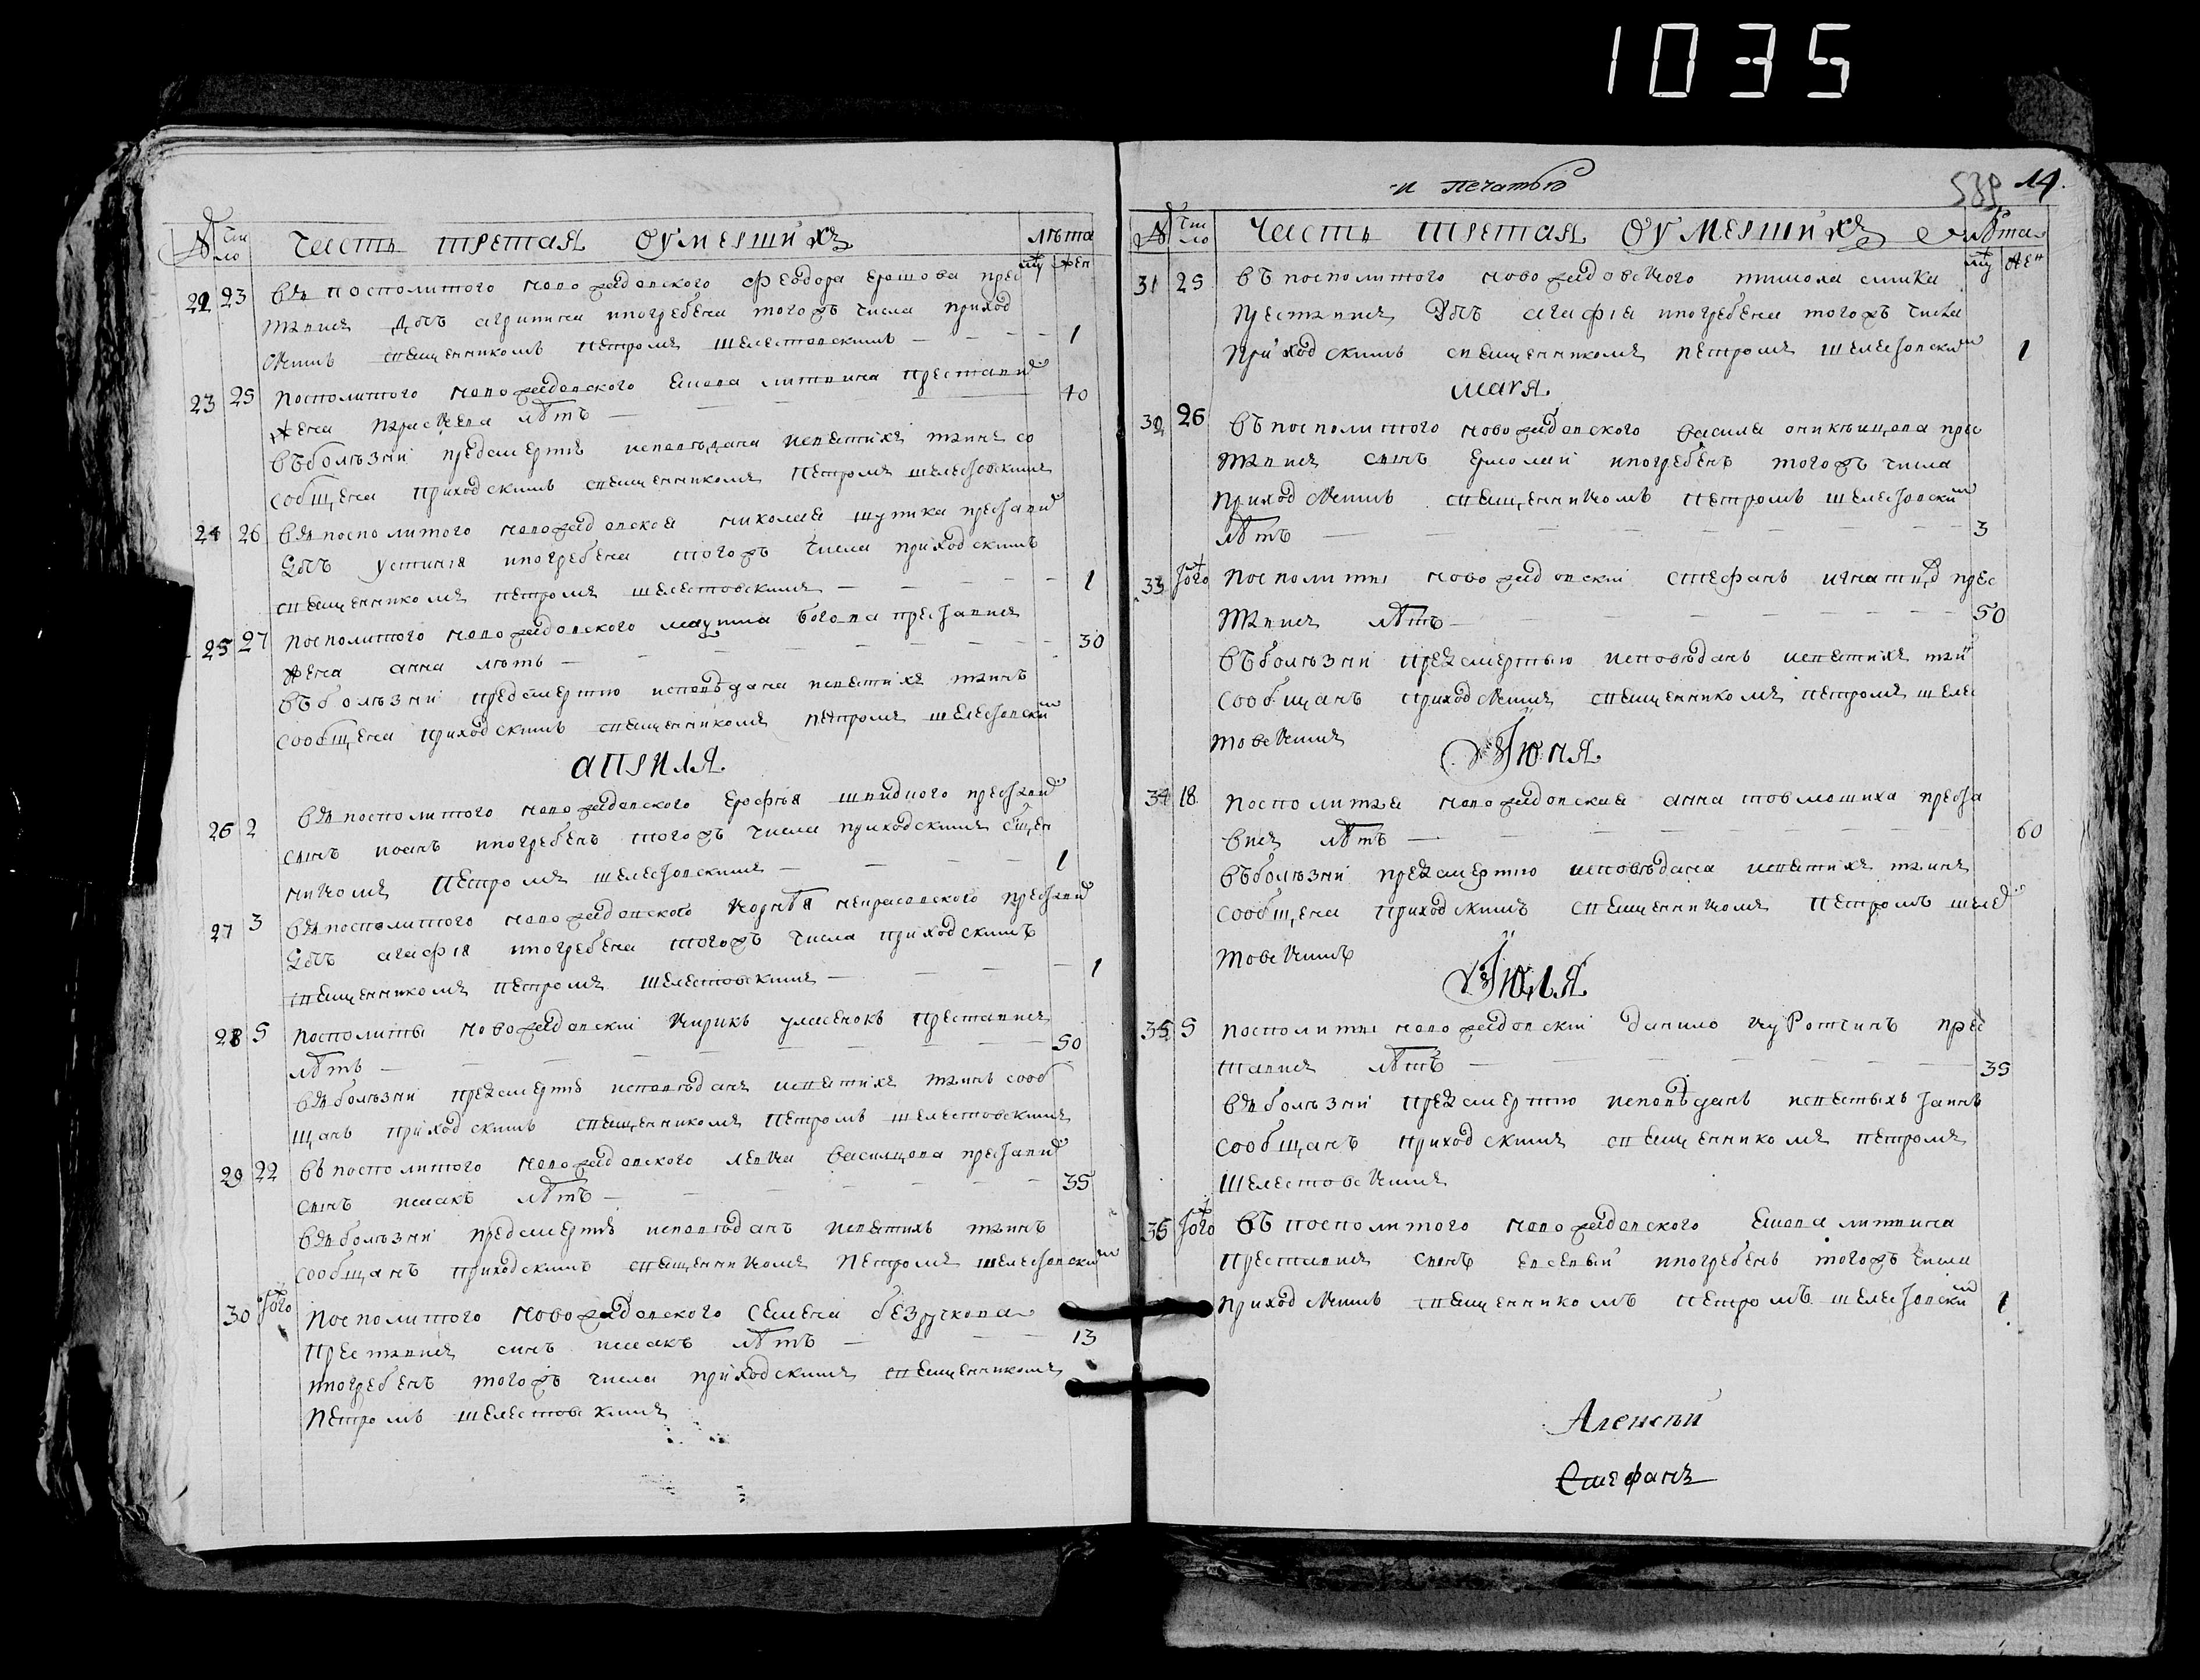 1035
и печатью
539 14.
№ Число Часть третая о умершихъ Лѣта
муж жен
22 23 въ посполитого новожадовского Феодора Ершова прес
тавися дочь агрипина и погребена того жъ числа приход
скимъ священникомъ петромъ шелестовскимъ — 1
23 25 посполитого новожадовского литвина преставися
жена параскева лѣтъ — 40
въ болѣзни предсмертнѣ исповѣдана и святихъ таинъ со
собщена приходскимъ священникомъ петромъ шелестовскимъ
24 26 въ посполитого новожадовского николая шутика преставися
дочь устинія и погребена того жъ числа приходскимъ
священникомъ петромъ шелестовскимъ — 1
25 27 посполитого новожадовского преставися
жена анна лѣтъ — 30
въ болѣзни предсмертно исповѣдана и святихъ таинъ
сообщена приходскимъ священникомъ петромъ шелестовским
априля
26 2 въ посполитого новожадовского ерофѣя преставися
синъ иоанъ и погребенъ того жъ числа приходскимъ свщен
никомъ петромъ шелестовскимъ — 1
27 3 въ посполитого новожадовского корнѣя некрасовского преставися
дочь агафія и погребена того жъ числа приходскимъ
священникомъ петромъ шелестовскимъ — 1
28 5 посполиты новожадовскій кирикъ преставися
лѣтъ — 50
въ болѣзни предсмертнѣ исповѣданъ и святихъ таинъ сооб
щанъ приходскимъ священникомъ петромъ шелестовскимъ
29 22 въ посполитого новожадовского левка василцова преставися
синъ исаакъ лѣтъ — 35
въ болѣзни предсмертнѣ исповѣданъ и святихъ таинъ
сообщанъ приходскимъ священникомъ петромъ шелестовским
30 того посполитого новожадовского семена безрукова
преставися синъ исаакъ лѣтъ — 13
и погребенъ того жъ числа приходскимъ священникомъ
петромъ шелестовскимъ
№ Число Часть третая о умершихъ Лѣта
муж жен
31 25 въ посполитого новожадовского тимоха слика
преставися дочь агафія и погребена того жъ числа
приходскимъ священникомъ петромъ шелестовским 1
мая
32 26 въ посполитого новожадовского василя прес
тавися синъ ермолай и погребенъ того жъ числа
приходскимъ священникомъ петромъ шелестовским
лѣтъ — 3
33 того посполиты новожадовскій стефанъ прес
тавися лѣтъ — 50
въ болѣзни предсмертью исповѣданъ и святихъ таин
сообщанъ приходскимъ священникомъ петромъ шелес
товскимъ
Июня
34 18 посполитая новожадовская анна товмошиха преста
вися лѣтъ — 60
въ болѣзни предсмертно исповѣдана и святихъ таинъ
сообщена приходскимъ священникомъ петромъ шелес
товскимъ
Июля
35 5 посполиты новожадовскій данило прес
тавися лѣтъ — 35
въ болѣзни предсмертно исповѣданъ и святыхъ таинъ
сообщанъ приходскимъ священникомъ петромъ
шелестовскимъ
36 того въ посполитого новожадовского литвина
преставися синъ евсевый и погребенъ того жъ числа
приходскимъ священникомъ петромъ шелестовским 1
Алексѣй
Стефанъ